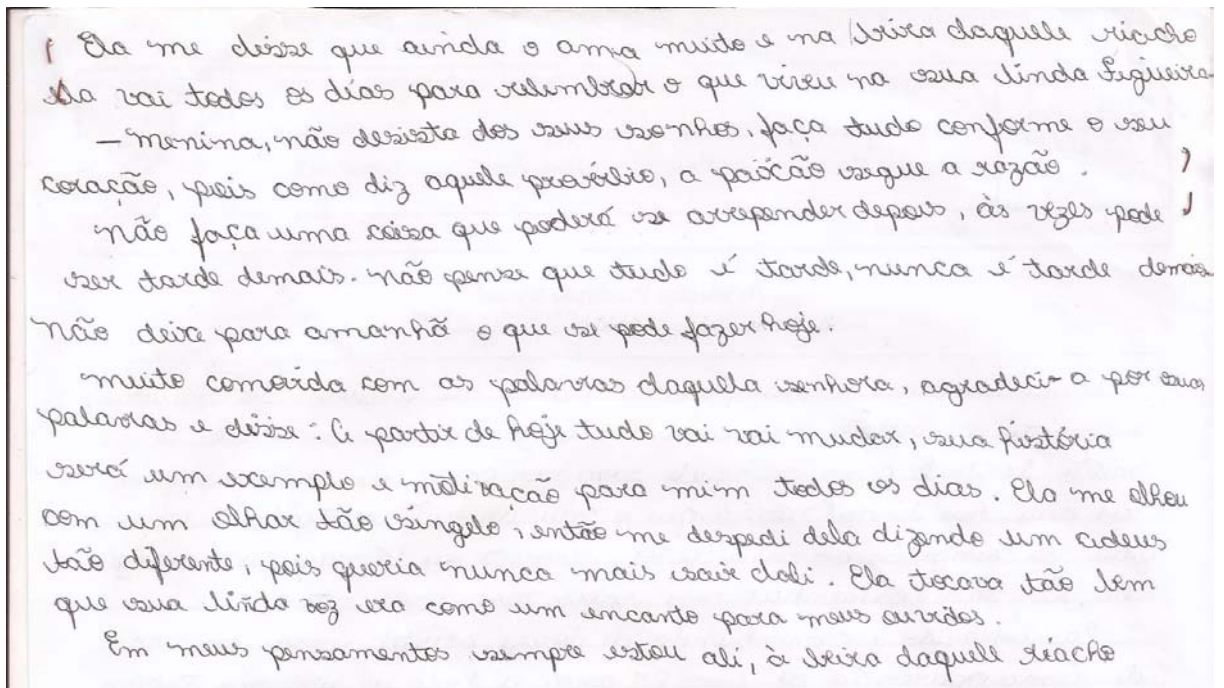 Ela me disse que ainda o ama muito e na beira daquele riacho
ela vai todos os dias para relembrar o que viveu na sua linda Figueira
- Menina, não desista dos seus sonhos, faça tudo conforme o seu
coração, pois como diz aquele provérbio, a paixão segue a razão.
Não faça uma coisa que poderá se arrepender depois, às vezes pode
ser tarde demais. Não pense que tudo é tarde, nunca é tarde demais
Não deixe para amanhã o que se pode fazer hoje.
Muito comovida com as palavras daquela senhora, agradeci-a por suas
palavras e disse: A partir de hoje tudo vai vai mudar, sua história
será um exemplo e motivação para mim todos os dias. Ela me olhou
com um olhar tão singelo, então me despedi dela dizendo um adeus
tão diferente, pois queria nunca mais sair dali. Ela tocava tão bem
que sua linda voz era como um encanto para meus ouvidos.
Em meus pensamentos sempre estou ali, à beira daquele riacho